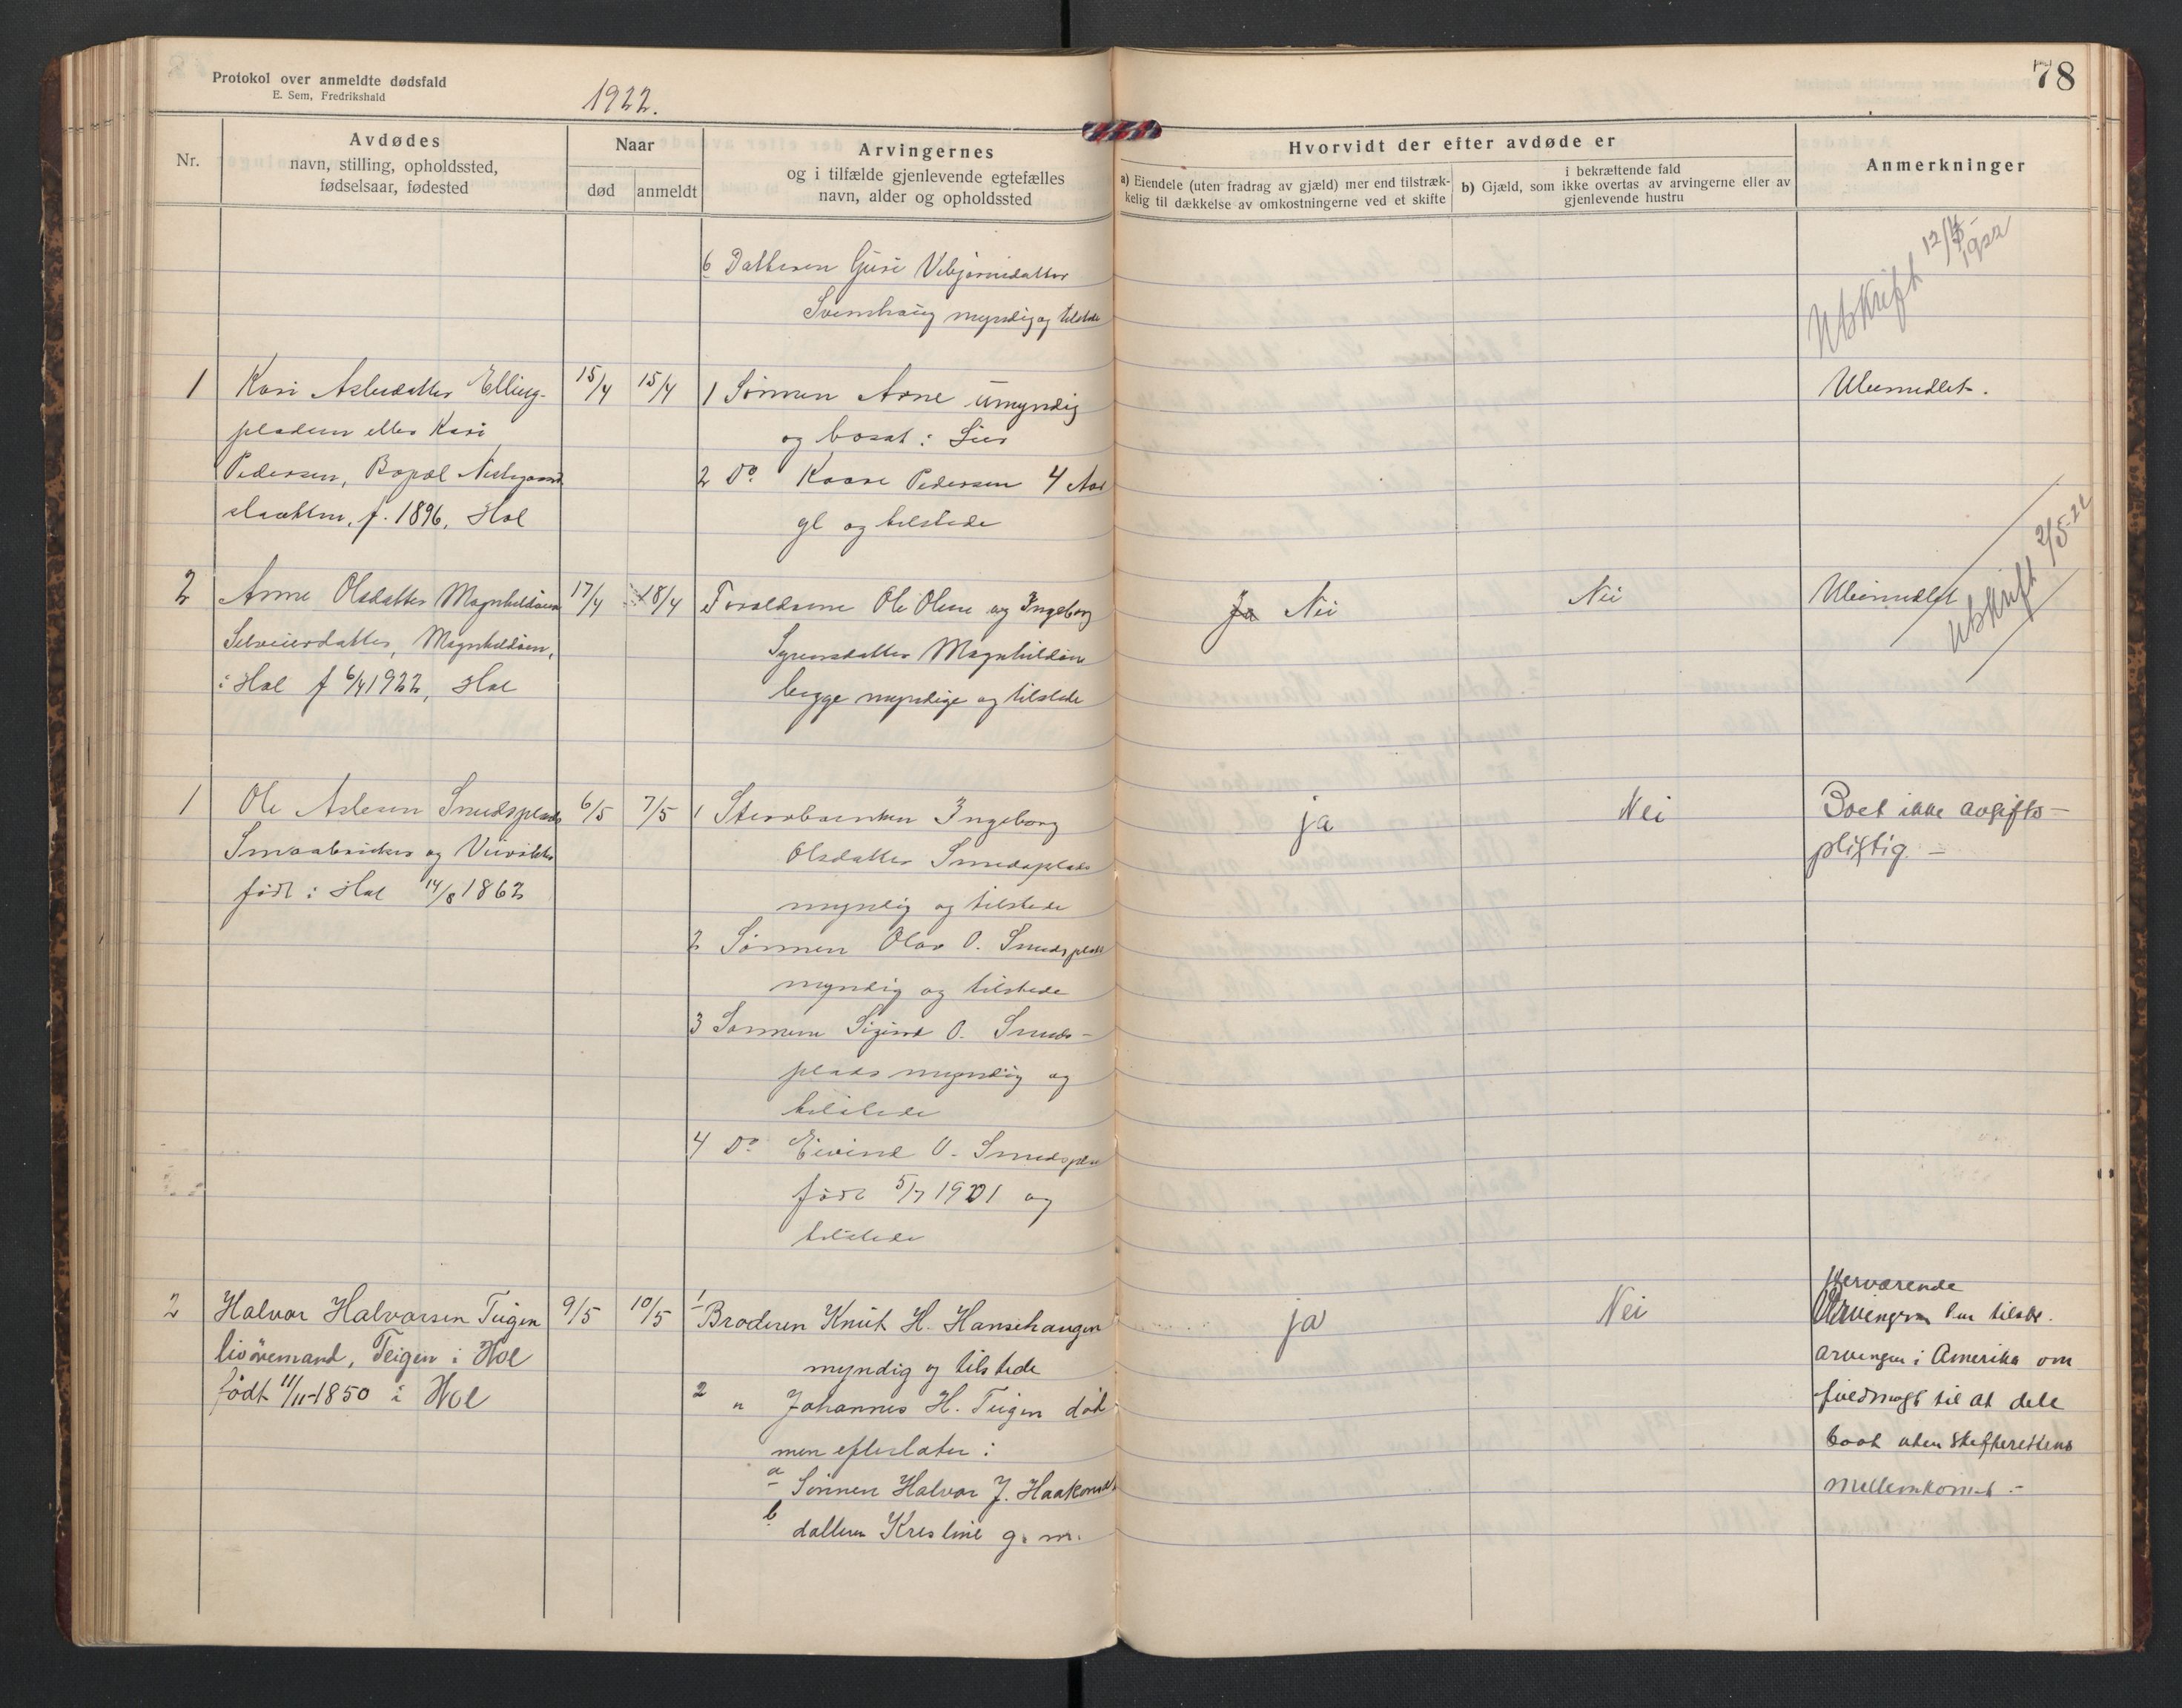 Protokol over anmeldte dødsfald
E. Sem, Fredrikshald
1922.
78
Nr.
Avdødes
navn, stilling, opholdssted,
fødselsaar, fødested
Naar
død
anmeldt
Arvingernes
og i tilfælde gjenlevende egtefælles
navn, alder og opholdssted
Hvorvidt der efter avdøde er
a) Eiendele (uten fradrag av gjæld) mer end tilstræk-
kelig til dækkelse av omkostningerne ved et skifte
i bekræftende fald
b) Gjæld, som ikke overtas av arvingerne eller av
gjenlevende hustru
Anmerkninger
6 Datteren Guri
myndig og tilstede
Utskrift 12/5 1922
1 Kari Asledatter Elling-
pladsen eller Kari
Pedersen, Bopæl
f. 1896, Hol
15/4 15/4
1 Sønnen Arne umyndig
og bosat i Lier
2 Do Kaare Pedersen 4 Aar
gl og tilstede
Ubemidlet.
2 Anne Olsdatter
i Hol f 6/4 1922, Hol
17/4 18/4
Forældrene Ole Olsen og Ingeborg
begge myndige og tilstede
Ja Nei
Nei
Ubemidlet
Utskrift 2/5-22
1 Ole Aslesen Smedsplads
Smaabruker og
født i Hol 14/8 1862
6/5 7/5
1 Ingeborg
Olsdatter Smedsplads
myndig og tilstede
2 Sønnen Olav O. Smedsplads
myndig og tilstede
3 Sønnen Sigurd O. Smeds-
plads myndig og
tilstede
4 Do Eivind O. Smedsplads
født 5/7 1901 og
tilstede
ja
Nei
Boet ikke avgifts-
pligtig. -
2 Halvor Halvorsen Teigen
livøremand, Teigen i Hol
født 11/11-1850 i Hol
9/5 10/5
1 Broderen Knut H. Hansehaugen
myndig og tilstede
2 " Johannes H. Teigen død
men efterlater:
a Sønnen Halvor J.
b datteren Kristine g. m.
ja
Nei
Herværende
Arvinger tilskr.
arvingen i Amerika om
fuldmagt til at dele
boet uten skifterettens
mellemkomst.-